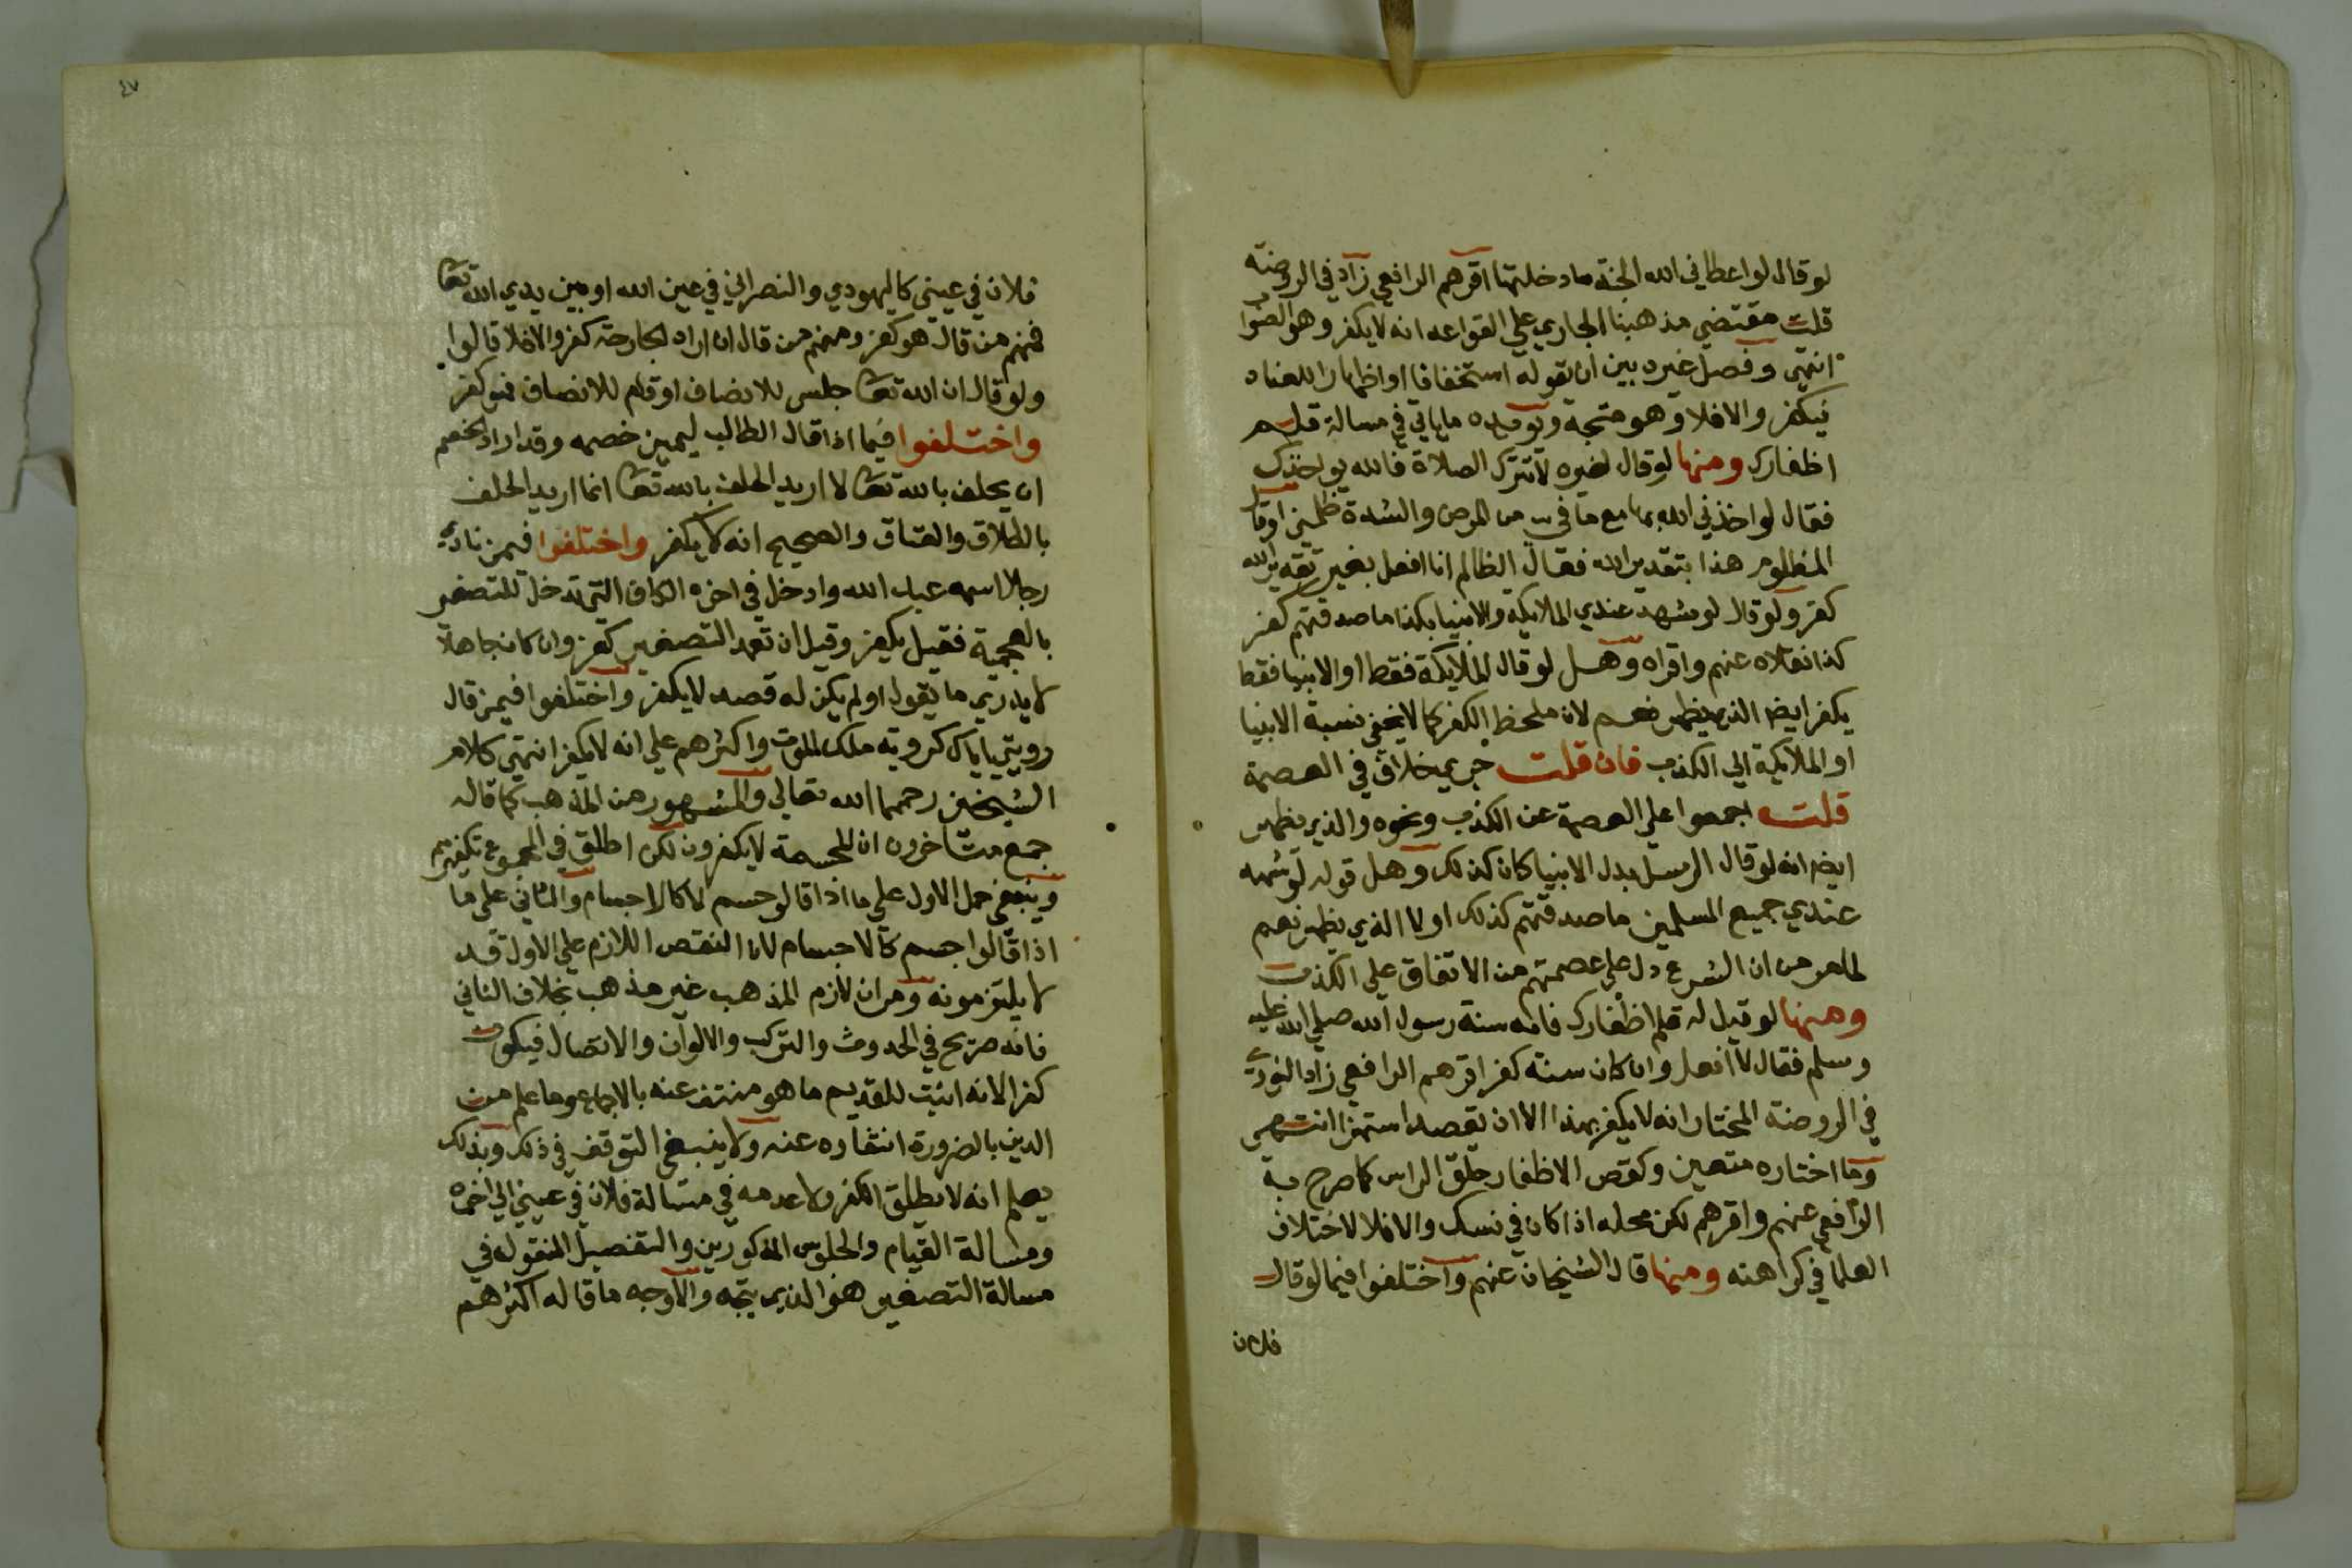 لو قال لو اعطاني الله الجنة ما دخلتها اقرهم الرافعي زاد في الروضة
قلت مقتضي مذهبنا الجاري علي القواعد انه لا يكفر وهو الصوا
انتهى وفصل غيره بين ان يقوله استخفافا او اظهارا للعناد
فيكفر والا فلا وهو متجه ويويده ما ياتي في مسالة قلم
اظفارك ومنها لو قال لغيره لا تترك الصلاة فالله يواخذك
فقال لو اخذني الله بها مع ما في من المرض والشدة ظلمني او قال
المظلوم هذا بتقدير الله فقال الظالم انا افعل بغير تقدير الله
كفر ولو قال لو شهد عندي الملايكه والانبيا بكذا ما صدقتهم كفر
كذا نقلاه عنهم واقراه وهل لو قال الملايكة فقط او الانبيا فقط
يكفر ايضا الذي يظهر نعم لان ملحظ الكفر كما لا يخفي نسبة الانبيا
او الملايكة الي الكذب فان قلت جري خلاف في العصمة
قلت اجمعوا علي العصمة عن الكذب ونحوه والذي يظهر
ايضا انه لو قال الرسل بدل الانبيا كان كذلك وهل قوله لو شهد
عندي جميع المسلمين ما صدقتهم كذلك او لا الذي يظهر نعم
لما مر من ان الشرع دل علي عصمتهم من الاتفاق علي الكذب
ومنها لو قيل له قلم اظفارك فانه سنة رسول الله صلي الله عليه
وسلم فقال لا افعل وان كان سنة كفر اقرهم الرافعي زاد النووي
في الروضة المختار انه لا يكفر بهذا الا ان يقصد استهزا انتهى
وما اختاره متعين وكقص الاظفار حلق الراس كما صرح به
الرافعي عنهم واقرهم لكن محله اذا كان في نسك والا فلا لاختلاف
العلما في كراهته ومنها قال الشيخان عنهم واختلفوا فيما لو قال
فلان
٤٧
فلان في عيني كاليهودي والنصراني في عين الله او بين يدي الله تعا
فمنهم من قال هو كفر ومنهم من قال ان اراد الجارحة كفر والا فلا قالوا
ولو قال ان الله تعا جلس للانصاف او قام للانصاف فهو كفر
واختلفوا فيما اذا قال الطالب ليمين خصمه وقد اراد الخصم
ان يحلف بالله تعا لا اريد الحلف بالله تعا انما اريد الحلف
بالطلاق والعتاق والصحيح انه لا يكفر واختلفوا فيمن نادي
رجلا اسمه عبد الله وادخل في اخره الكاف التي تدخل للتصغير
بالعجمية فقيل يكفر وقيل ان تعمد التصغير كفر وان كان جاهلا
لا يدري ما يقول او لم يكن له قصد لا يكفر واختلفوا فيمن قال
رويتي اياك كروية ملك الموت واكثرهم علي انه لا يكفر انتهى كلام
الشيخين رحمهما الله تعالي والمشهور من المذهب كما قاله
جمع متاخرون ان المجسمة لا يكفرون لكن اطلق في المجموع تكفيرهم
وينبغي حمل الاول علي ما اذا قالوا جسم لا كالاجسام والثاني علي ما
اذا قالوا جسم كالاجسام لان النقص اللازم علي الاول قد
لا يلتزمونه ومر ان لازم المذهب غير مذهب بخلاف الثاني
فانه صريح في الحدوث والتركب والالوان والاتصال فيكون
كفرا لانه اثبت للقديم ما هو منتف عنه بالاجماع وما علم من
الدين بالضرورة انتفاوه عنه ولا ينبغي التوقف في ذلك وبذلك
يعلم انه لا يطلق الكفر ولا عدمه في مسالة فلان في عيني الي اخره
ومسالة القيام والجلوس المذكورين والتفصيل المنقول في
مسالة التصغير هو الذي يتجه والاوجه ما قاله اكثرهم